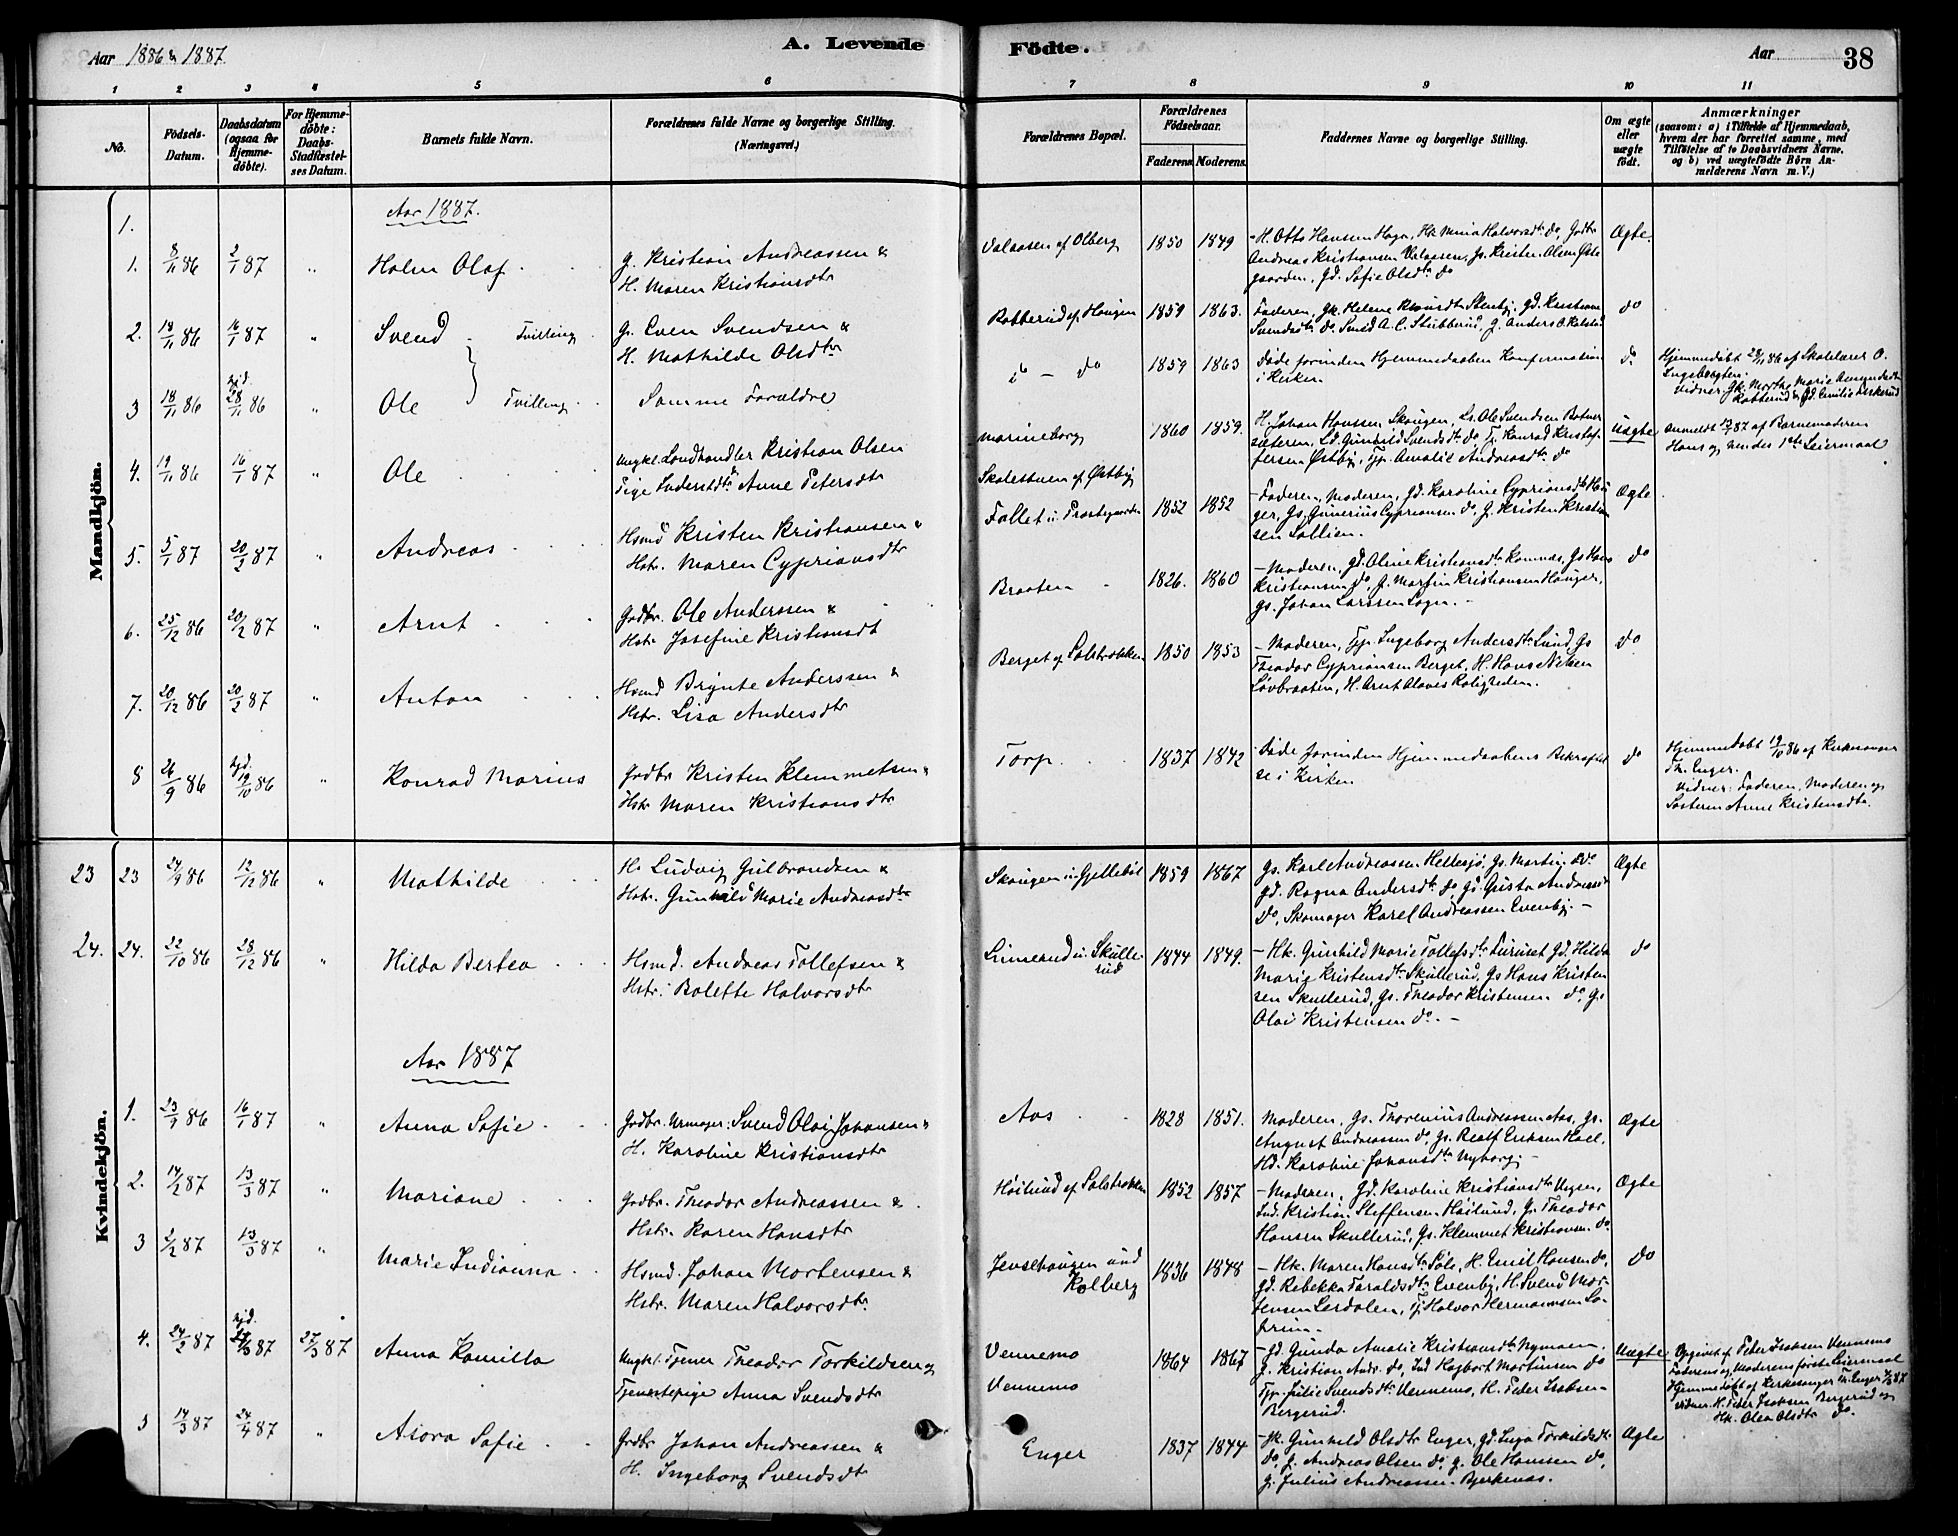 Aar 1886 & 1887.
A. Levende
Födte.
Aar
38
1 2 3 4 5 6 7 8 9 10 11
No.
Födsels-
Datum.
Daabsdatum
(ogsaa for
Hjemme-
döbte).
For Hjemme-
döbte:
Daabs-
Stadfæstel-
ses Datum.
Barnets fulde Navn.
Forældrenes fulde Navne og borgerlige Stilling.
(Næringsvei.)
Forældrenes Bopæl.
Forældrenes
Födselsaar.
Faderens. Moderens.
Faddernes Navne og borgerlige Stilling.
Om ægte
eller
uægte
födt.
Anmærkninger
(saasom: a) i Tilfælde af Hjemmedaab,
hvem der har forrettet samme, med
Tilföielse af to Daabsvidners Navne,
og b) ved uægtefödte Börn An-
melderens Navn m. V.)
Mandkjön.
1. Aar 1887.
1. 8/11 86 2/1 87 " Holm Olaf
G. Kristian Andreassen &
H. Maren Kristiansdtr
Valaasen af Olberg 1850 1849
H. Otto Hansen Haga, Hk. Mina Halvorsdtr do, Godtr
Andreas Kristiansen Valaasen, Gs. Kristen Olsen Øste
gaarden, Gd. Sofie Olsdtr do
Ægte.
2. 18/11 86 16/1 87 " Svend Tvilling
G. Even Svendsen &
H. Mathilde Olsdtr
Rabberud af Haugen 1859 1863.
Faderen, Gk. Helene Stenby, Gd. Kristiane
Svendsdtr do, A. C. Stubberud, G. Anders O. Kolstad
do
3 18/11 86 28/11 86 " Ole Tvilling
Samme Forældre
do - do 1859 1863
Døde forinden Hjemmedaabens Konfirmation
i Kirken.
do.
Hjemmedøbt 28/11 86 af Skolelærer O.
Vidner Gk. Marthe Marie Amundsdtr
4. 19/11 86 16/1 87 " Ole
Ungkl. Landhandler Kristian Olsen
Pige Anne Petersdtr
Marineborg
Skolestuen af Østby
1860 1859.
H. Johan Hansen Skaugen, Ls. Ole Svendsen Botner
sæteren, Ld. Gunhild Svendsdtr do, Tj. Konrad Kristof-
fersen Østby, Tp. Amalie Andreasdtr do
Uægte
anmeldt 13/1 87 af Barnemoderen
Hans og hendes 1ste Leiermaal
5. 5/1 87 20/2 87 " Andreas
Hsmd Kristen Kristiansen &
Hstr. Maren Cypriansdtr
Fallet u. Præstegaarden 1852 1852
Faderen, Moderen, Gd. Karoline Cypriansdtr Hau
ger, Gs. Gunerius Cypriansen do, G. Kristen Kristian
sen Sollien.
Ægte
6. 25/12 86 20/2 87 " Arnt
Grdbr. Ole Anderssen &
Hstr. Josefine Kristiansdt
Braaten 1826. 1860
Moderen, Gd. Oline Kristiansdtr Kamnæs, Gs. Hans
Kristiansen do, G. Martin Kristiansen Hauger,
Gs. Johan Larssen Sogn.
do
7. 20/12 86 20/2 87 " Anton
Hsmd Brynte Anderssen &
Hstr. Lisa Andersdtr
Berget af Solstrokken 1850 1853
Moderen, Tp. Ingeborg Andersdtr Lund, Gs
Theodor Cypriansen Berget, H. Hans Nilsen
Løvbraaten, H. Arnt Olaves Roligheden.
do.
8 26/9 86 19/10 86 " Konrad Marius
Grdbr Kristen Klemmetsen &
Hstr Maren Kristiansdtr
Torp 1837 1842
Døde forinden Hjemmedaabens Bekræftel
se i Kirken
do
Hjemmedøbt 19/10 86 af Kirkesanger
Th. Enger.
Vidner: Faderen, Moderen og
Søsteren Anne Kristensdtr.
Kvindekjön.
23 23 24/9 86 12/12 86 " Mathilde
H. Ludvig Gulbrandsen &
Hstr. Gunhild Marie Andreasdtr
Skaugen u. Gjellebøl 1859 1867
Gs. Karl Andreassen Hellesjø, Gs. Martin do
Gd. Ragna Andersdtr do, Gd. Gusta Andreasdtr
do, Skomager Karel Andreassen Evenby.
Ægte
24. 24. 22/10 86 28/12 86 " Hilda Bertea
Hsmd. Andreas Tollefsen &
Hstr. Bolette Halvorsdtr
Linnerud u. Skulle-
rud 1844 1849.
Hk. Gunhild Marie Tollefsdtr Gd. Hilda
Marie Kristensdtr Skullerud, Gs Hans Kristen
sen Skullerud, Gs. Theodor Kristensen do, Gs
Olai Kristensen do.
do
Aar 1887
1. 23/9 86 16/1 87 " Anna Sofie
Grdbr. Urmager: Svend Olai Johansen &
H. Karoline Kristiansdtr
Aas 1828 1851.
Moderen, Gs. Thorenius Andreassen Aas, Gs.
August Andreassen do, Gs. Reolf Eriksen
Hd. Karoline Johansdtr Nyborg.
Ægte
2. 14/2 87 13/3 87 " Mariane
Grdbr. Theodor Andreassen &
Hstr. Karen Hansdtr
Høilund af Solstrokken 1852 1857
Moderen, Gd. Karoline Kristiansdtr
Ind. Kristian Steffensen Høilund, G. Theodor
Hansen Skullerud, Gs. Klemmet Kristiansen do.
Ægte
3 2/2 87 13/3 87 " Marie Indianna
Hsmd. Johan Mortensen &
Hstr. Maren Halvorsdtr.
Jensehaugen und
Kolberg 1836 1848
Hk. Maren Hansdtr, H. Emil Hansen do,
Gd. Rebekka Taraldsdtr Evenby, H. Svend Mor-
tensen Lerdalen, Tj. Halvor Hermansen
do
4. 24/2 87 27/3 87 27/3 87 Anna Kamilla
Ungkl. Tjener Theodor Torkildsen og
Tjenestepige Anna Svendsdtr
Vennemo
Vennemo
1864 1867
Gd. Gunda Amalie Kristiansdtr Nymoen,
G. Kristian Andr. do, Ind. Hagbart Martinsen do
Tp. Julie Svendsdtr Vennemo, H. Peder Isaksen
Bergerud.
Uægte
Opgivet af Peder Isaksen Vennemo
Faderens og Moderens første Leiermaal
Hjemmedøbt af Kirkesanger Th. Enger 87
Vidner H. Peder Isaksen Bergerud og
Hk. Olea Olsdtr do.
5 14/3 87 24/4 87 " Arora Sofie
Grdbr Johan Andreassen &
H. Ingeborg Svendsdtr
Enger 1837 1844
Gk. Gunhild Olsdtr Enger, Gd. Inga Torkildsdtr
do, G. Andreas Olsen do, G. Ole Hansen do,
G. Julius Andreassen Bjerkenæs.
Ægte